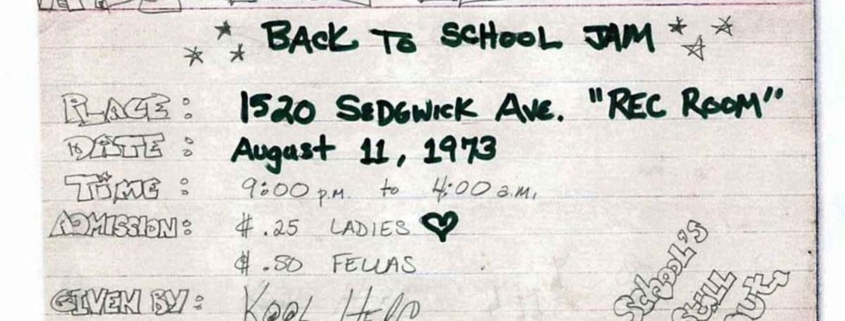 BACK TO SCHOOL JAM
PLACE: 1520 SEDGWICK AVE. "REC ROOM"
DATE: August 11, 1973
TIME: 9:00 p.m. to 4:00 a.m.
ADMISSION: $.25 LADIES
$.50 FELLAS
GIVEN BY: KOOL HERC
School's
Still
Out.